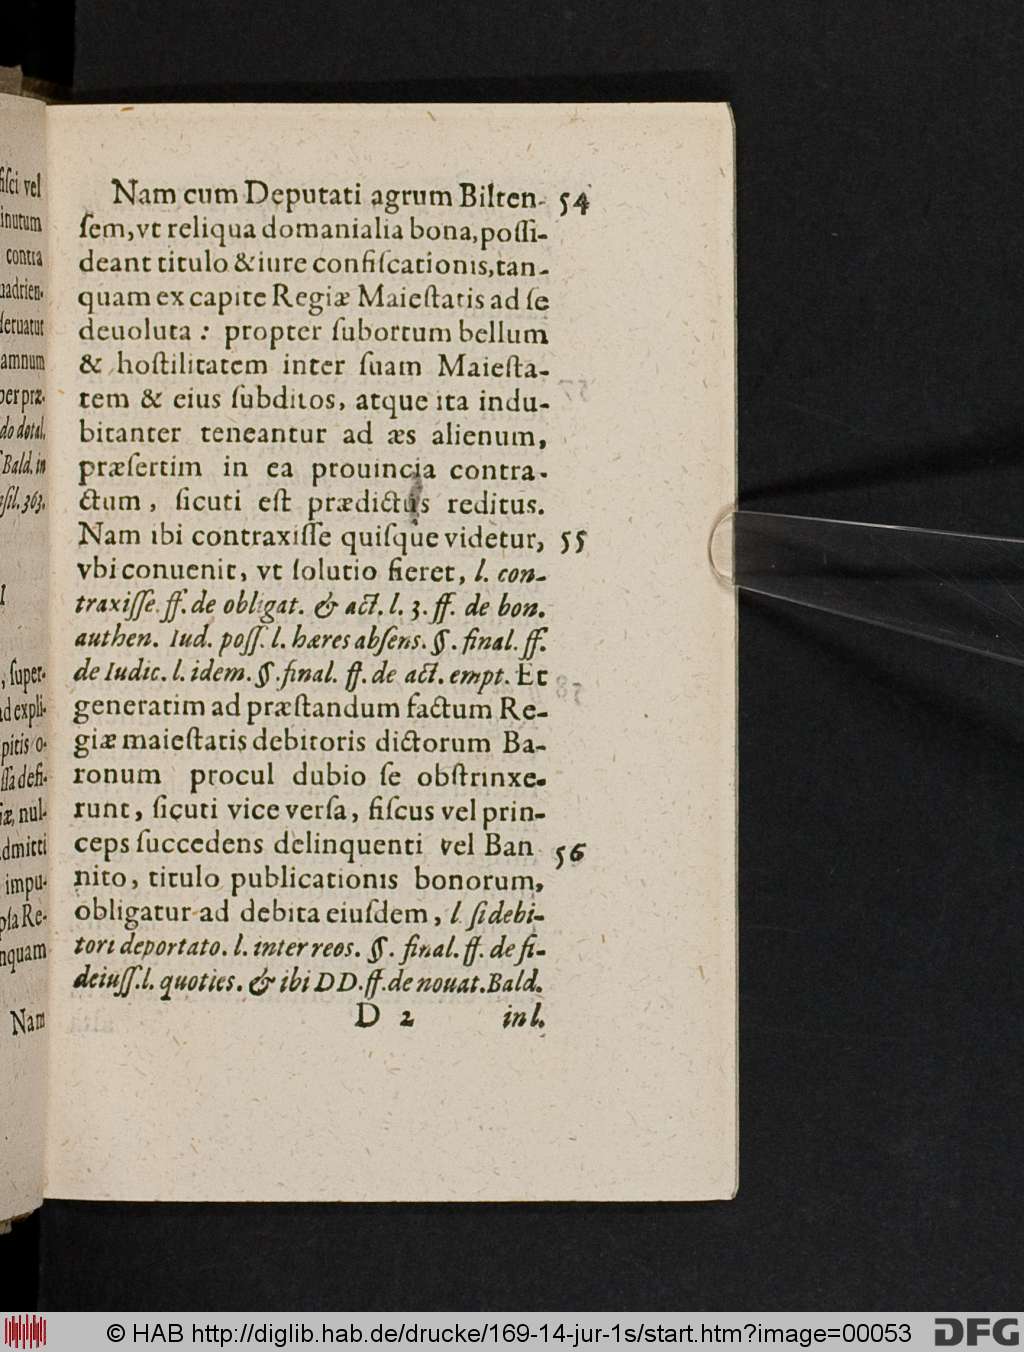 fisci vel
inutum
contra
uadrien-
seruatur
amnum
per præ-
do dotal.
Bald. in
sil. 363.
, super-
ad expli-
pitis o-
ssa defi-
iæ, nul-
admitti
impu-
psa Re-
nquam
Nam
Nam cum Deputati agrum Bilten- 54
sem, vt reliqua domanialia bona, possi-
deant titulo & iure confiscationis, tan-
quam ex capite Regiæ Maiestatis ad se
deuoluta : propter subortum bellum
& hostilitatem inter suam Maiesta-
tem & eius subditos, atque ita indu-
bitanter teneantur ad æs alienum,
præsertim in ea prouincia contra-
ctum, sicuti est prædictus reditus.
Nam ibi contraxisse quisque videtur, 55
vbi conuenit, vt solutio fieret, l. con-
traxisse ff. de obligat. & act. l. 3. ff. de bon.
authen. Iud. poss. l. hæres absens. §. final. ff.
de Iudic. l. idem. §. final. ff. de act. empt. Et
generatim ad præstandum factum Re-
giæ maiestatis debitoris dictorum Ba-
ronum procul dubio se obstrinxe-
runt, sicuti vice versa, fiscus vel prin-
ceps succedens delinquenti vel Ban 56
nito, titulo publicationis bonorum,
obligatur ad debita eiusdem, l si debi-
tori deportato. l. inter reos. §. final. ff. de fi-
deiuss. l. quoties. & ibi DD. ff. de nouat. Bald.
D 2 in l.
© HAB http://diglib.hab.de/drucke/169-14-jur-1s/start.htm?image=00053 DFG